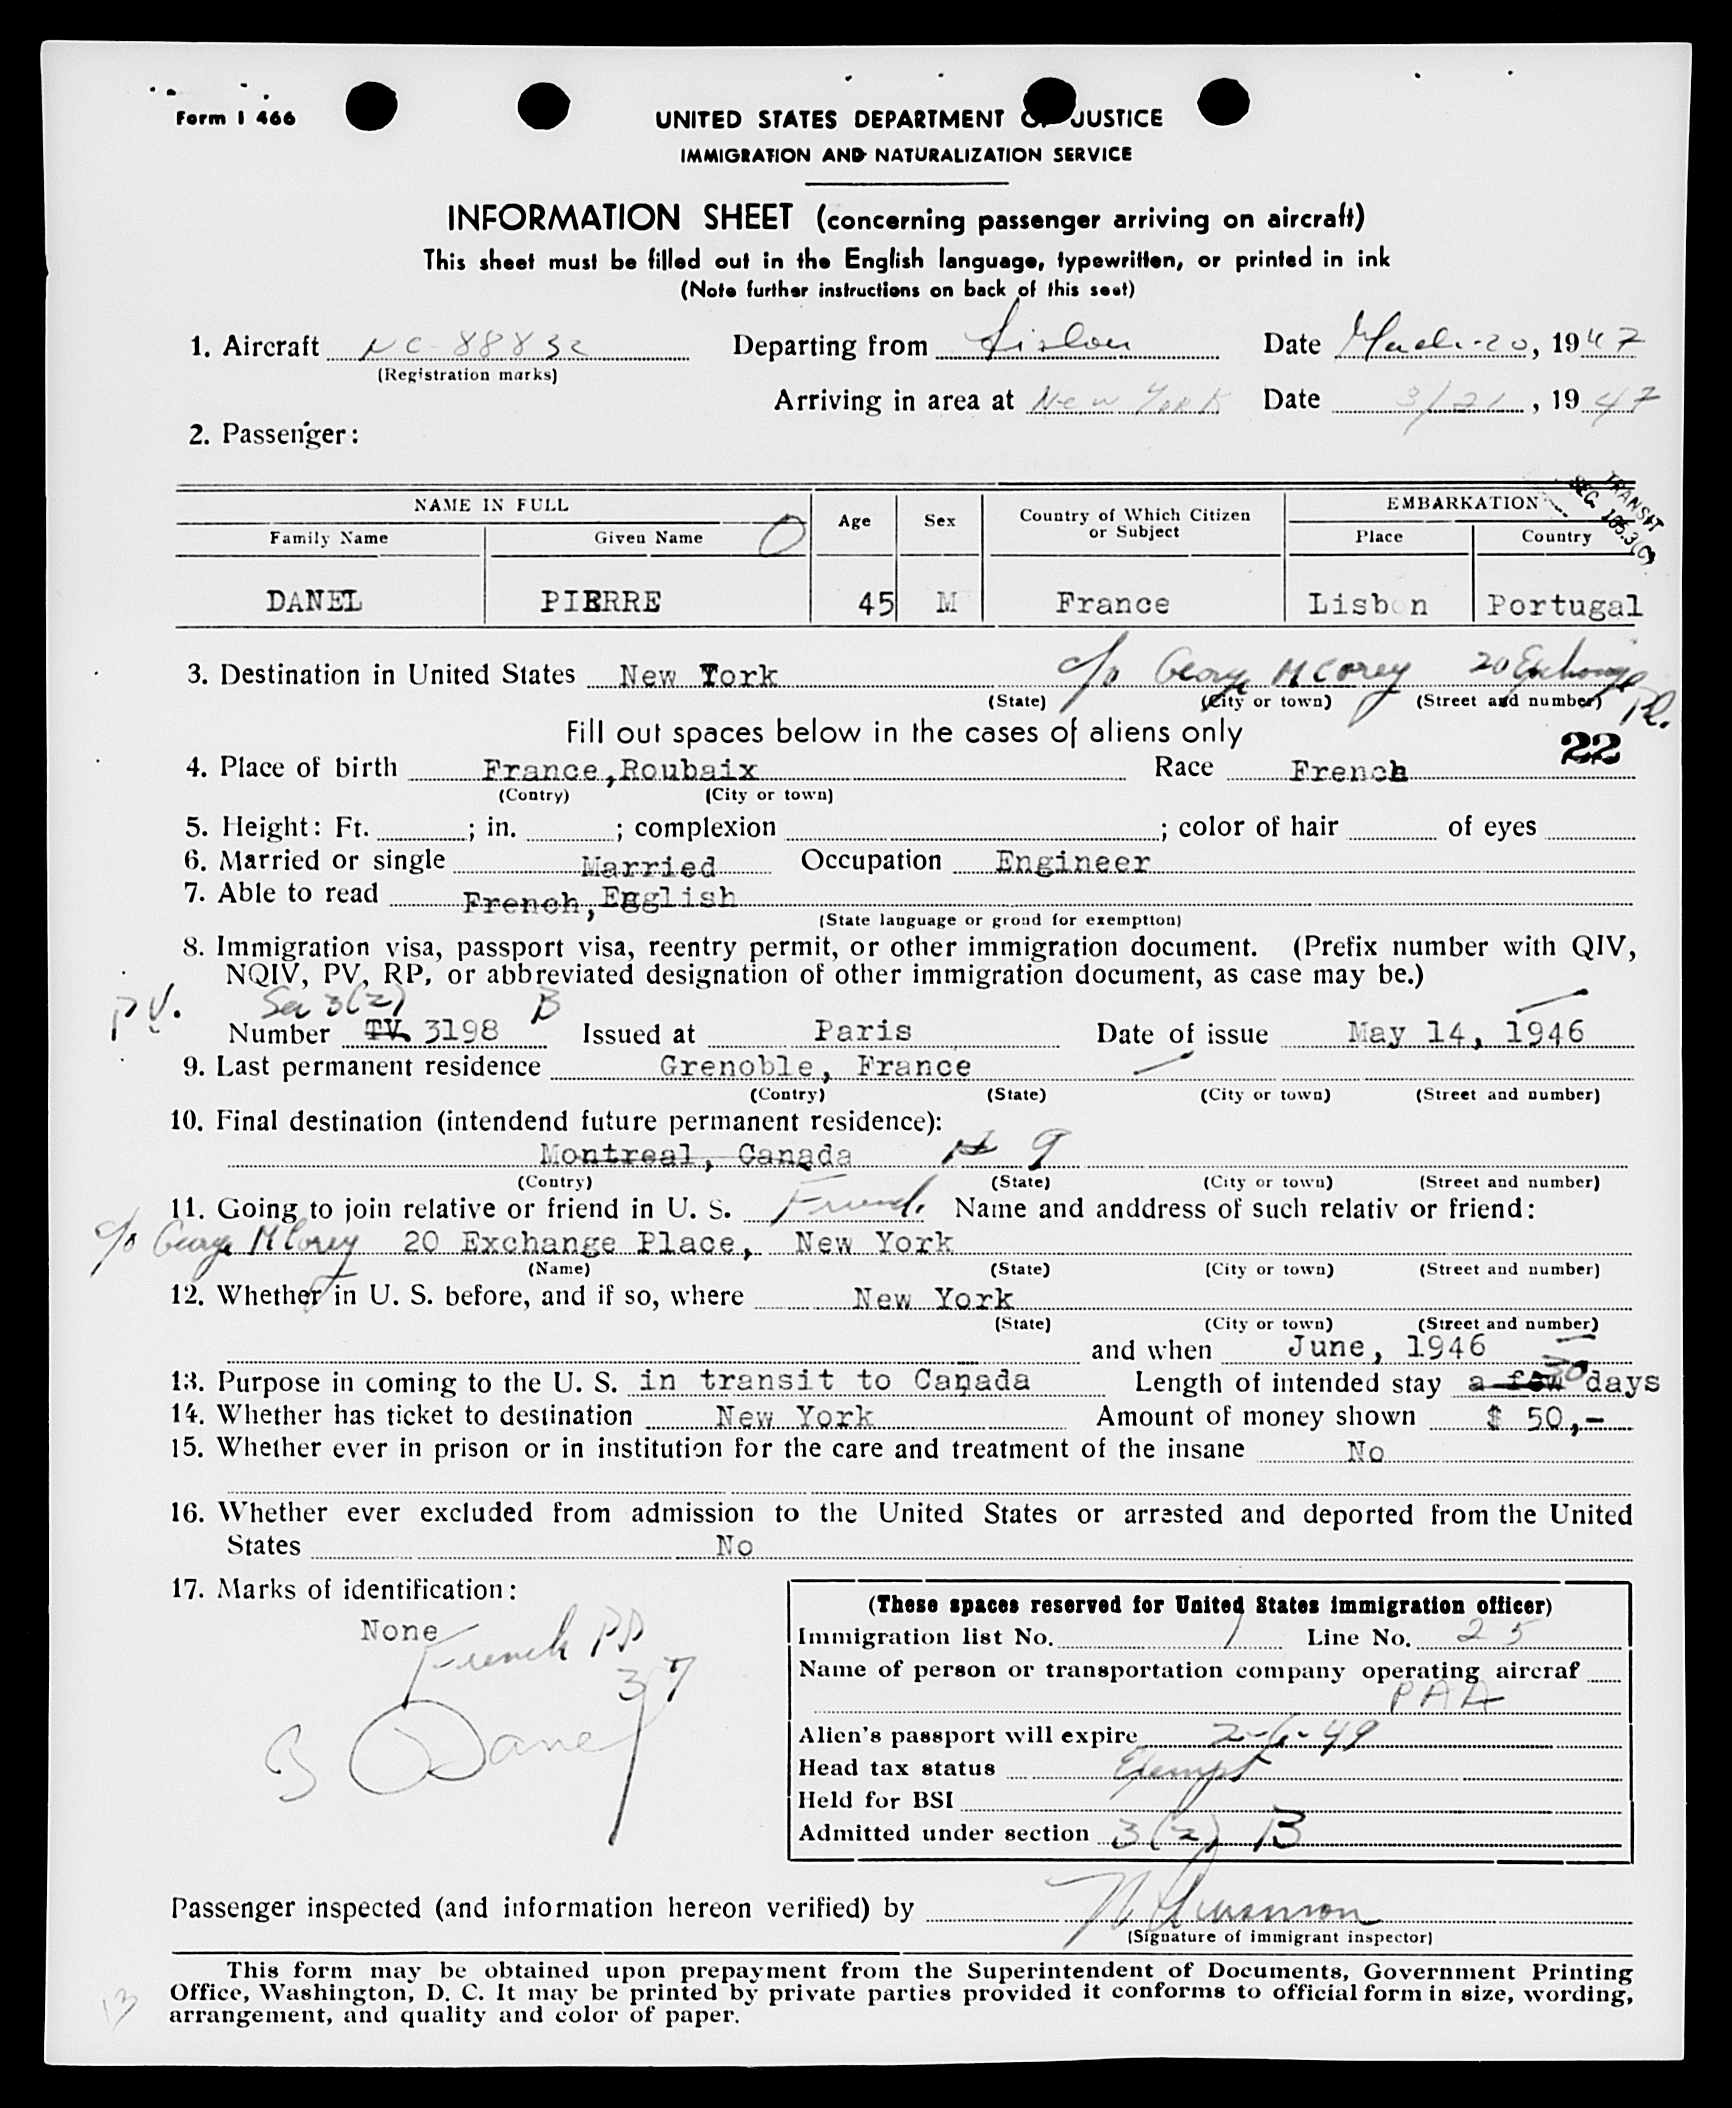 Form I 466
UNITED STATES DEPARTMENT OF JUSTICE
IMMIGRATION AND NATURALIZATION SERVICE
INFORMATION SHEET (concerning passenger arriving on aircraft)
This sheet must be filled out in the English language, typewritten, or printed in ink
(Note further instructions on back of this seet)
1. Aircraft NC-88832 Departing from Lisbon Date March-20, 1947
(Registration marks)
Arriving in area at New York Date 3/21, 1947
2. Passenger:
TRANSIT
SEC. 165.3(C)
NAME IN FULL Age Sex Country of Which Citizen or Subject EMBARKATION
Family Name Given Name Place Country
DANEL PIERRE 45 M France Lisbon Portugal
3. Destination in United States New York c/o George M Corey 20 Exchange Pl.
(State) (City or town) (Street and number)
Fill out spaces below in the cases of aliens only
22
4. Place of birth France, Roubaix Race French
(Contry) (City or town)
5. Height: Ft. ; in. ; complexion ; color of hair of eyes
6. Married or single Married Occupation Engineer
7. Able to read French, English
(State language or grond for exemptton)
8. Immigration visa, passport visa, reentry permit, or other immigration document. (Prefix number with QIV,
NQIV, PV, RP, or abbreviated designation of other immigration document, as case may be.)
PV. Sec 3(2) B
Number TV. 3198 Issued at Paris Date of issue May 14, 1946
9. Last permanent residence Grenoble, France
(Contry) (State) (City or town) (Street and number)
10. Final destination (intendend future permanent residence):
Montreal, Canada # 9
(Contry) (State) (City or town) (Street and number)
11. Going to join relative or friend in U. S. Friend. Name and anddress of such relativ or friend:
c/o George M Corey 20 Exchange Place, New York
(Name) (State) (City or town) (Street and number)
12. Whether in U. S. before, and if so, where New York
(State) (City or town) (Street and number)
and when June, 1946
13. Purpose in coming to the U. S. in transit to Canada Length of intended stay a few 30 days
14. Whether has ticket to destination New York Amount of money shown $ 50,-
15. Whether ever in prison or in institution for the care and treatment of the insane No
16. Whether ever excluded from admission to the United States or arrested and deported from the United
States No
17. Marks of identification:
None
French PP
37
Danel
(These spaces reserved for United States immigration officer)
Immigration list No. 1 Line No. 25
Name of person or transportation company operating aircraf
PAA
Alien's passport will expire 2-6-49
Head tax status Exempt
Held for BSI
Admitted under section 3(2) B
Passenger inspected (and information hereon verified) by
(Signature of immigrant inspector)
This form may be obtained upon prepayment from the Superintendent of Documents, Government Printing
Office, Washington, D. C. It may be printed by private parties provided it conforms to official form in size, wording,
arrangement, and quality and color of paper.
13